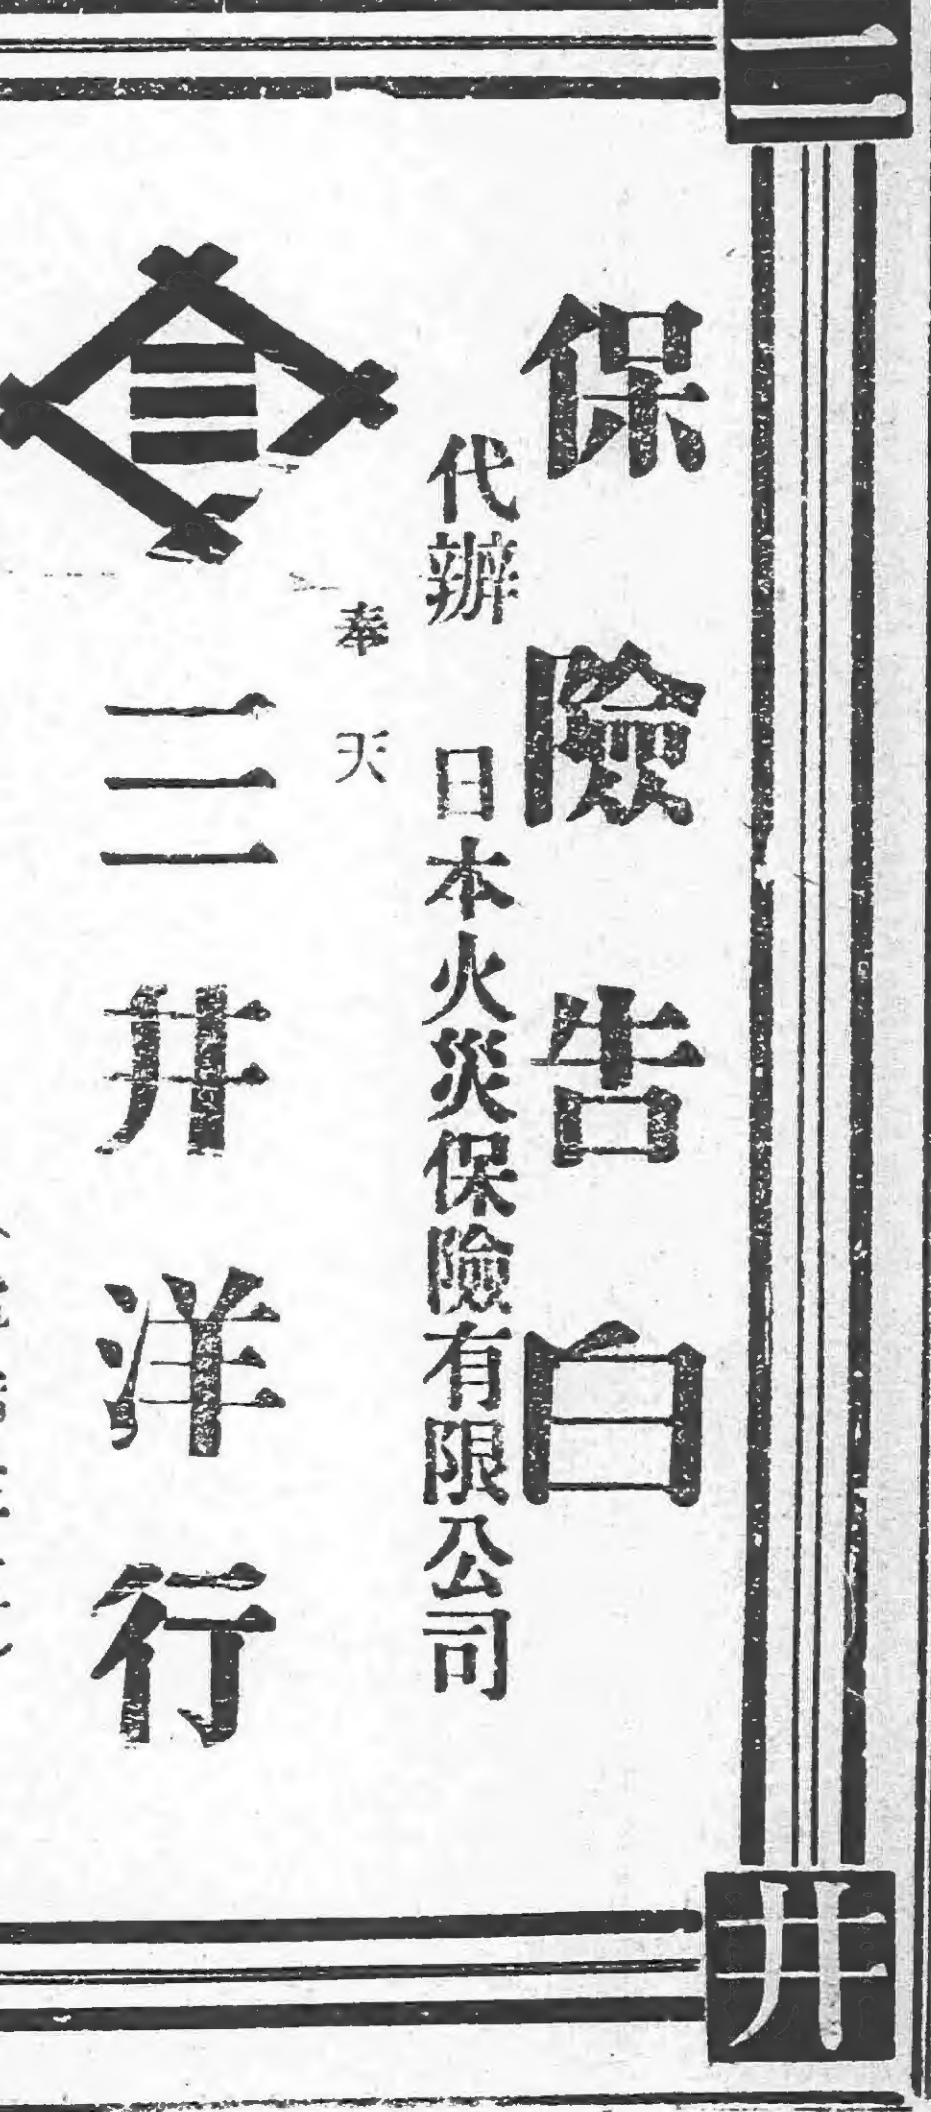 保險告白
代辦 日本火災保險有限公司
奉天
三井洋行
三
井